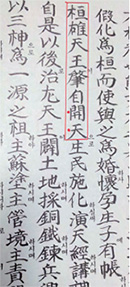 假化爲桓而使與之爲婚懷孕生子有帳
桓雄天王肇自開天生民施化演天經講神
自是以後治尤天王闢土地採銅鐵鍊兵興
以三神爲一源之祖主蘇塗主管境主責